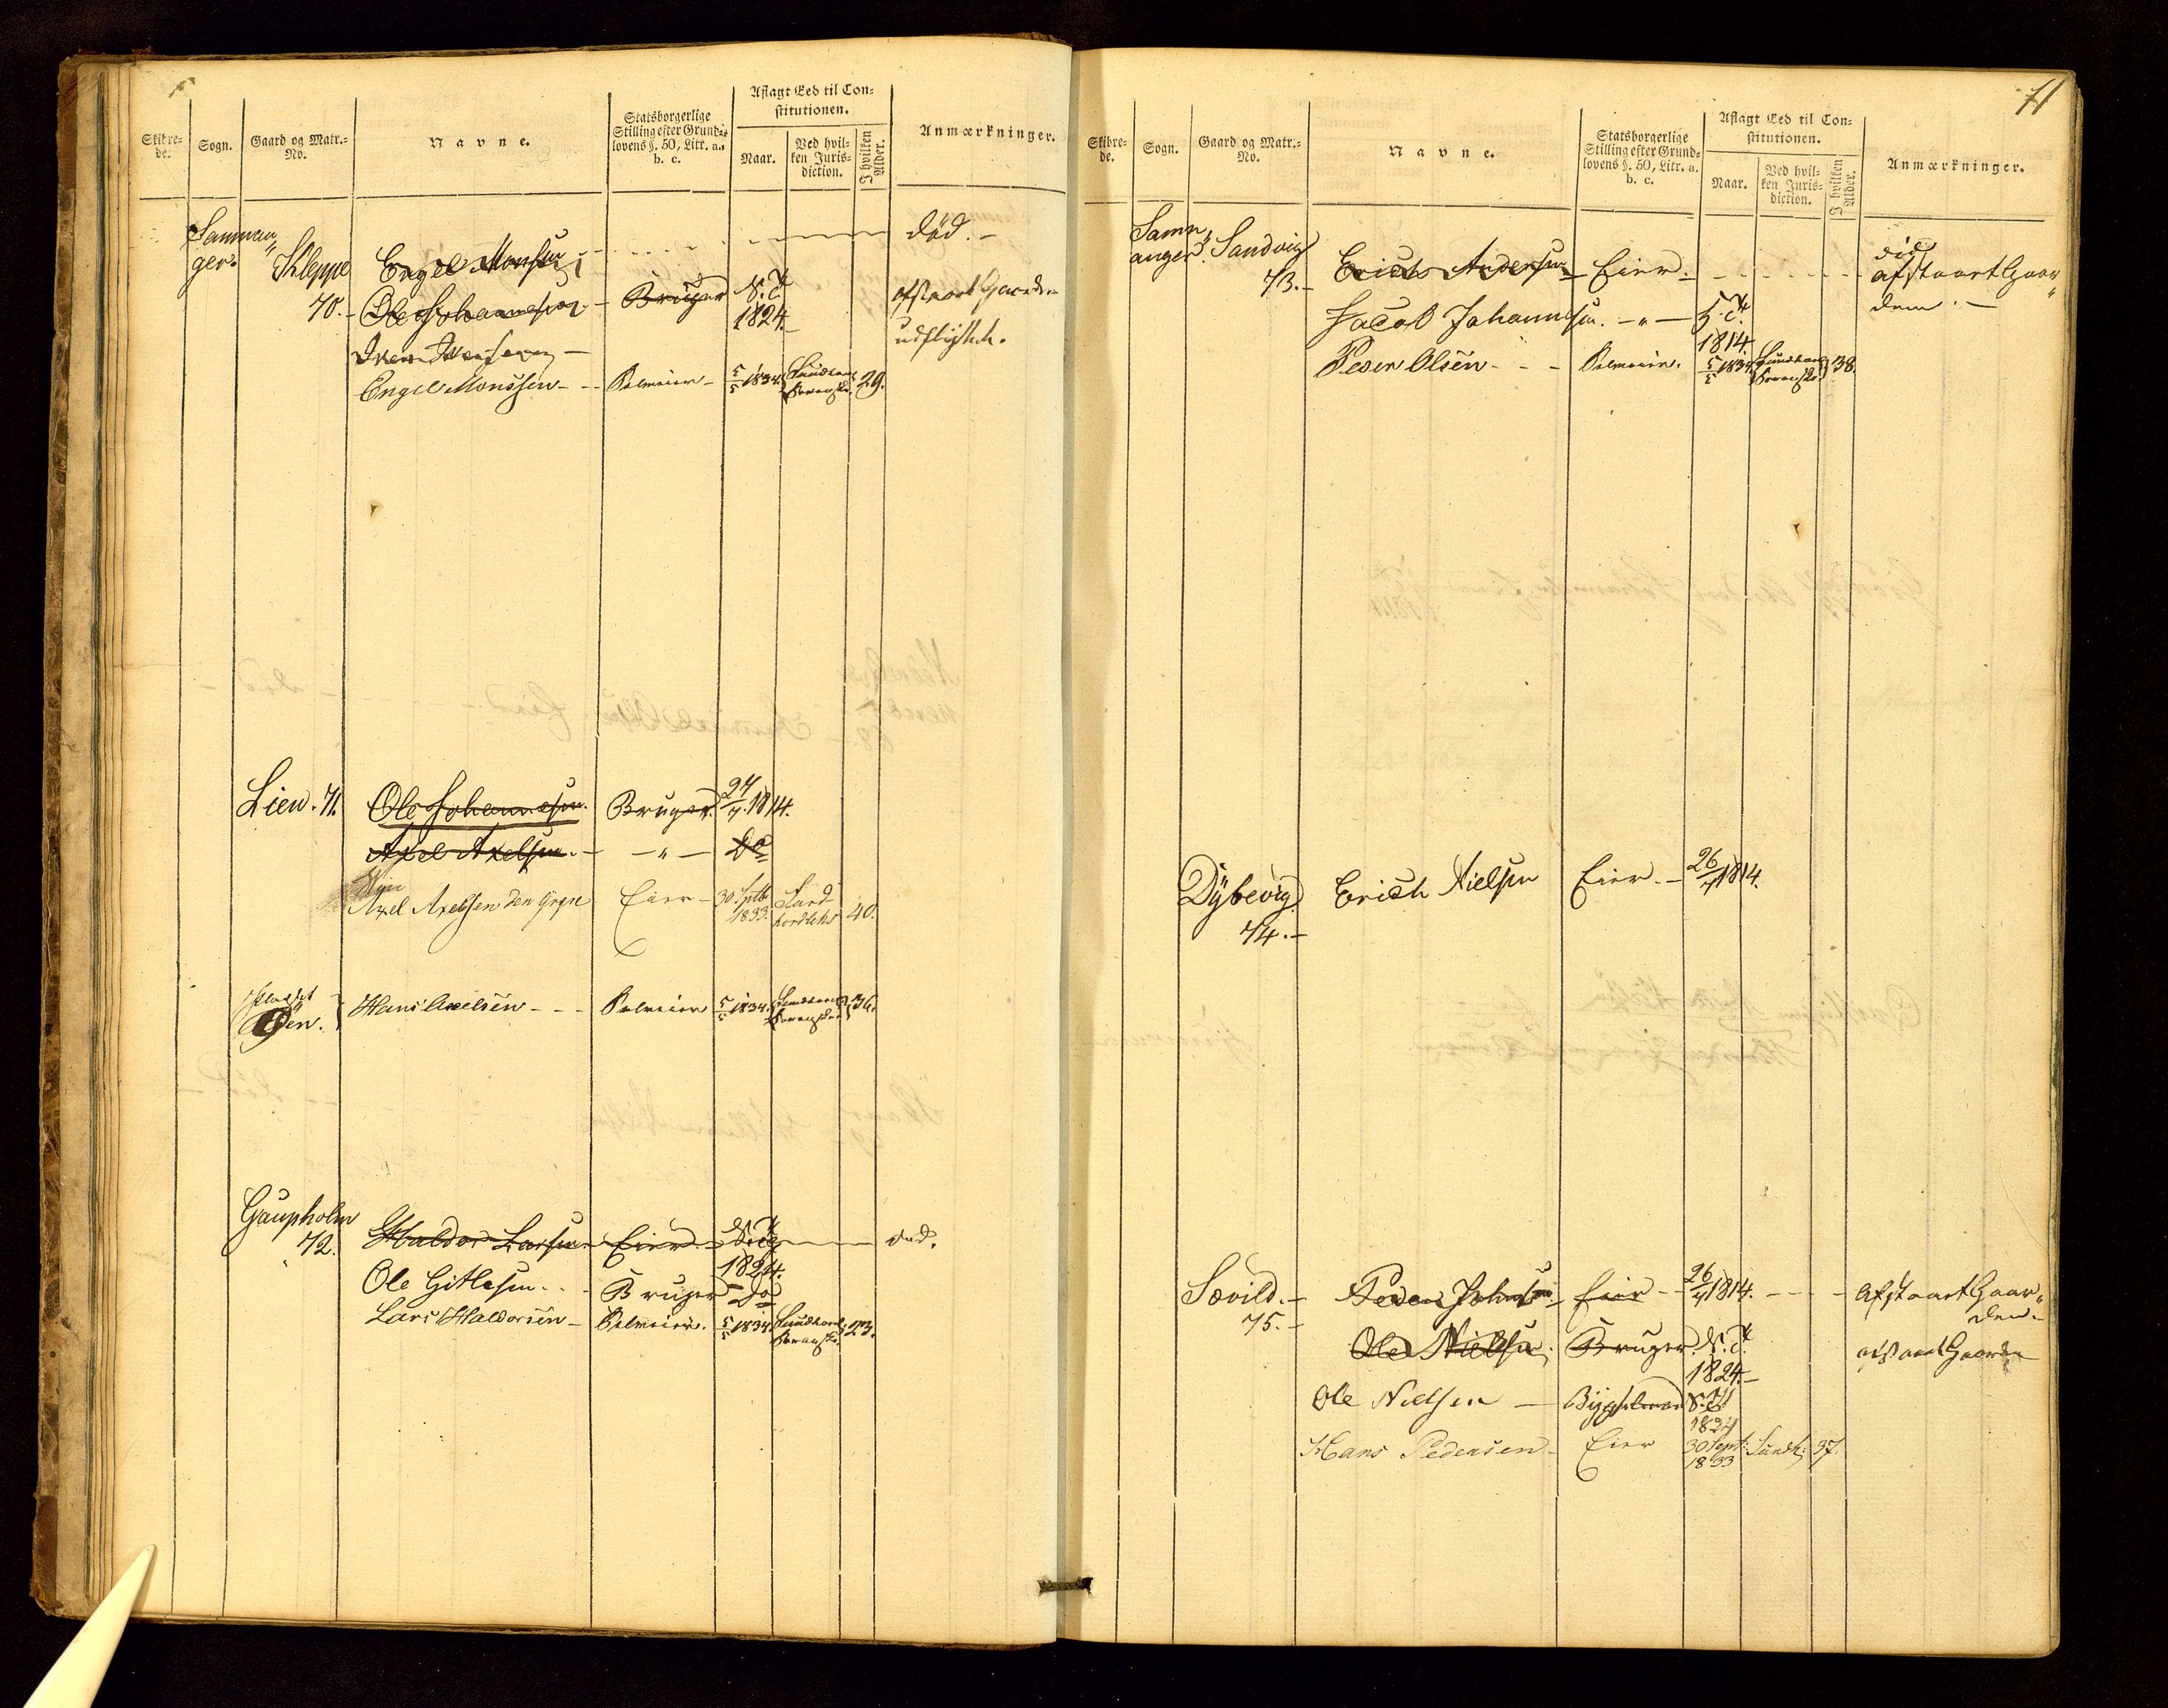 Skibre-
de.
Sogn.
Gaard og Matr.-
No.
Navne.
Statsborgerlige
Stilling efter Grund-
lovens §. 50, Litr. a.
b. c.
Aflagt Eed til Con-
stitutionen.
Naar.
Ved hvil-
ken Juris-
diction.
I hvilken
Alder.
Anmærkninger.
Samnan„
ger.
Kleppe
70.
Engel Monsen
død.-
Ole Johannesen - Bruger
1824.-
afstaaet Gaarden
udflyttet.
Engel Monssen - - - 5/5 1834. 29.
Lien. 71. Ole Johannesen. Bruger. 24/7 1814.
Axel Axelsen. - - „ - Do
Axel Axelsen den Yngre Eier - 30 Septb 1833. Sund hordlehn 40.
Pladset
Øen. Hans Axelsen - - - 5/5 1834. 36.
Gaupholm
72. Haldor Larsen Eier
1824.
død.
Ole Gitlesen. - - Bruger Do
Lars Haldorsen - 5/5 1834. 23.
71
Skibre-
de.
Sogn.
Gaard og Matr.-
No.
Navne.
Statsborgerlige
Stilling efter Grund-
lovens §. 50, Litr. a.
b. c.
Aflagt Eed til Con-
stitutionen.
Naar.
Ved hvil-
ken Juris-
diction.
I hvilken
Alder.
Anmærkninger.
Samn„
anger. Sandvig
73.- Erich Andersen Eier.
afstaaet Gaar„
den.-
Jacob Johannesen. - „ -
1814.
Peder Olsen - - - 5/5 1834. 38.
Dybevig
74.- Erich Nielsen Eier. - 26/7 1814.
Sævild.-
75.- Peder Johnsen Eier - - 26/7 1814. - - - Afstaaet Gaar„
den.-
Ole Nielsen. Bruger.
1824.-
afstaaet Gaarden
Ole Nielsen - Bygselmand
1824
Hans Pedersen - Eier 30 Sept: 1833 Sundh: 37.